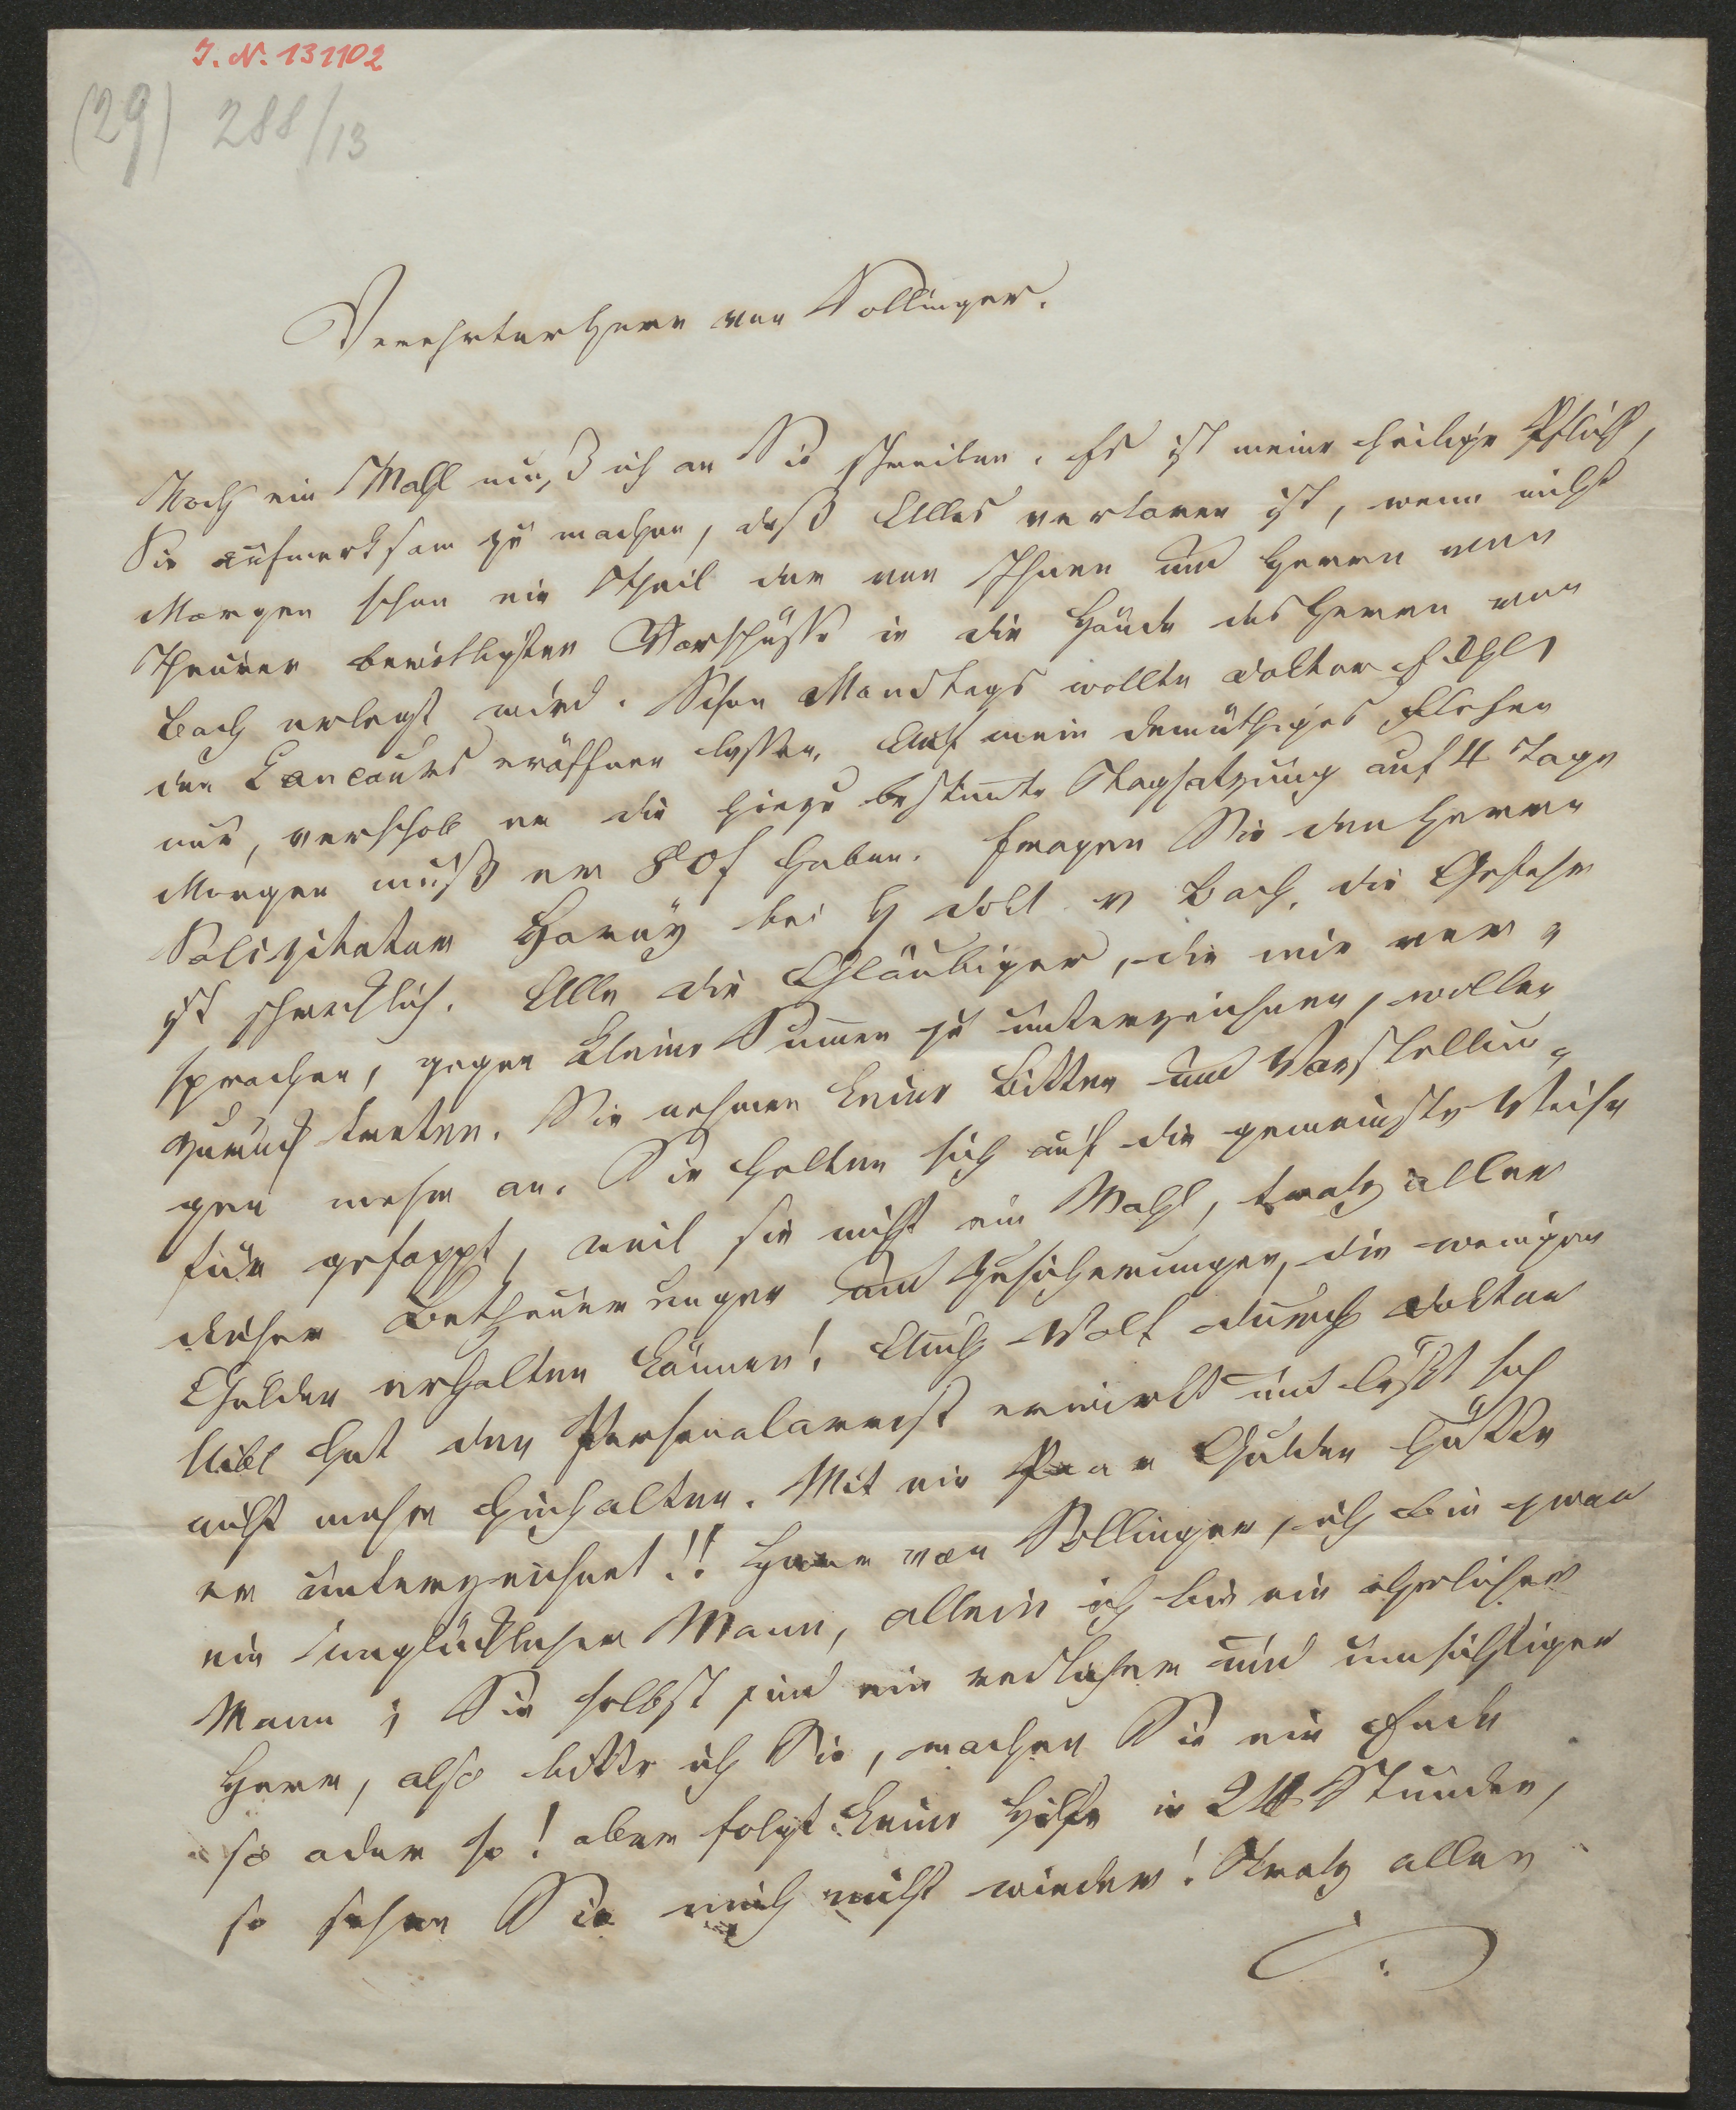 I. N. 131102
(29) 288/13
Verehrter Herr von Sollinger.
Noch ein Mahl muß ich an Sie schreiben. Es ist meine heilige Pflicht,
Sie aufmerksam zu machen, daß Alles verloren ist, wenn nicht
Morgen schon ein Theil der von Ihnen und Herrn von
bewilligten Vorschüsse in die Hände des Herrn von
Bach erlegt wird. Schon Mondtags wollte Doktor
den Concours eröffnen lassen. Auf mein demüthiges Flehen
nur, verschob er die hiezu bestimte Tagsatzung auf 4 Tage
Morgen muß er 80 f haben. Fragen Sie den Herrn
Solizitator bei H Dokt v Bach. die Gefahr
ist schrecklich. Alle die Gläubiger, die mir ver-
sprachen, gegen kleine Summen zu unterzeichnen, wollen
zurück treten. Sie nehmen keine Bitten und Vorstellun-
gen mehr an. Sie halten sich auf die gemeinste Weise
für gefoppt, weil sie nicht ein Mahl, trotz aller
dieser Betheuerungen und Zusicherungen, die wenigen
Gulden erhalten können! Auch Wolf durch Doktor
hat den Personalarrest erwirkt und läßt sich
nicht mehr hinhalten. Mit ein Paar Gulden hätte
er unterzeichnet!! Herr von Sollinger, ich bin zwar
ein unglücklicher Mann, allein ich bin ein ehrlicher
Mann; Sie selbst sind ein redlicher und umsichtiger
Herr, also bitte ich Sie, machen Sie ein Ende
so oder so! aber folgt keine Hilfe in 24 Stunden,
so sehen Sie mich nicht wieder! Trotz allen